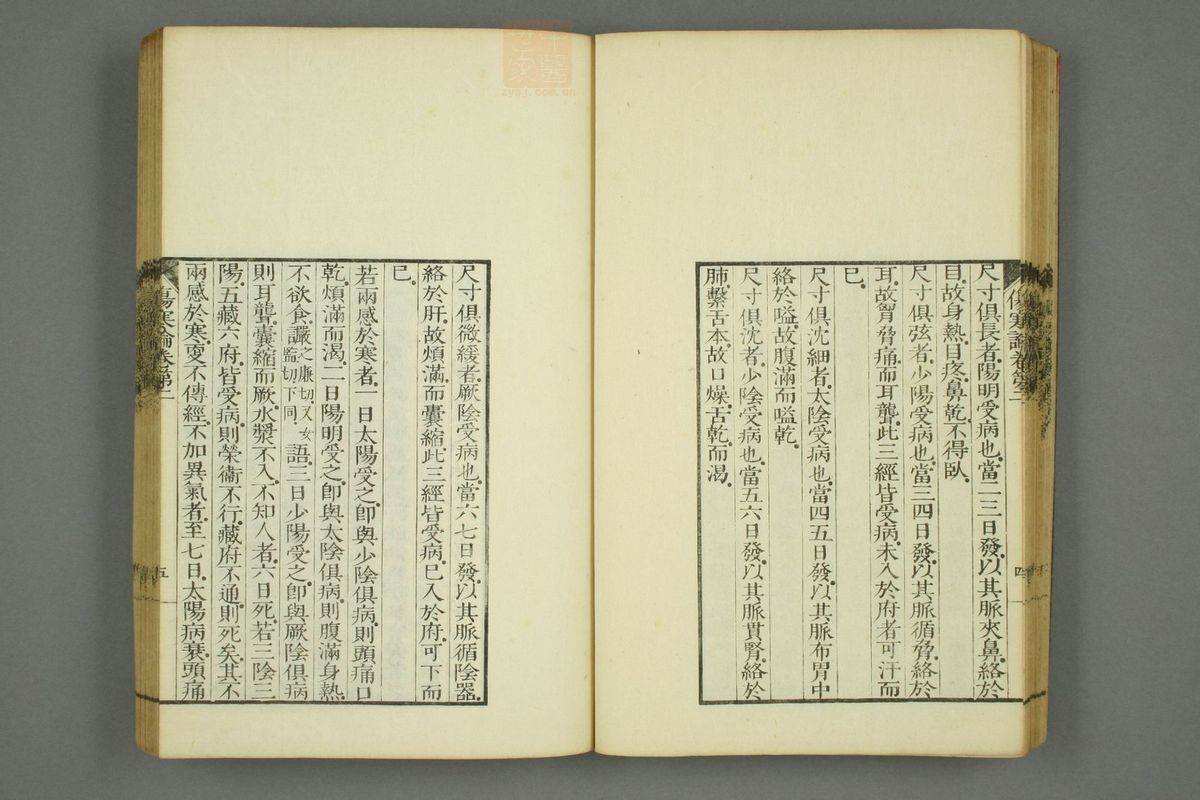 尺寸俱長者。陽明受病也。當二三日發。以其脈夾鼻。絡於
目。故身熱。目疼。鼻乾。不得臥。
尺寸俱弦者。少陽受病也。當三四日發。以其脈循脅。絡於
耳。故胷脅痛。而耳聾。此三經皆受病。未入於府者。可汗而
已。
尺寸俱沈細者。太陰受病也。當四五日發。以其脈布胃中
絡於嗌。故腹滿而嗌乾。
尺寸俱沈者。少陰受病也。當五六日發。以其脈貫腎。絡於
肺。繫舌本。故口燥。舌乾。而渴。
四
尺寸俱微緩者。厥陰受病也。當六七日發。以其脈循陰器。
絡於肝。故煩滿。而囊縮。此三經皆受病。已入於府。可下而
已。
若兩感於寒者。一日太陽受之。卽與少陰俱病。則頭痛口
乾。煩滿而渴。二日陽明受之。卽與太陰俱病。則腹滿身熱。
不欲食。讝之廉切。又女監切。下同。語。三日少陽受之。卽與厥陰俱病
則耳聾。囊縮而厥。水漿不入。不知人者。六日死。若三陰三
陽。五藏六府。皆受病。則榮衞不行。藏府不通。則死矣。其不
兩感於寒。更不傳經。不加異氣者。至七日。太陽病衰。頭痛
傷寒論卷第二
五
zysj.com.cn